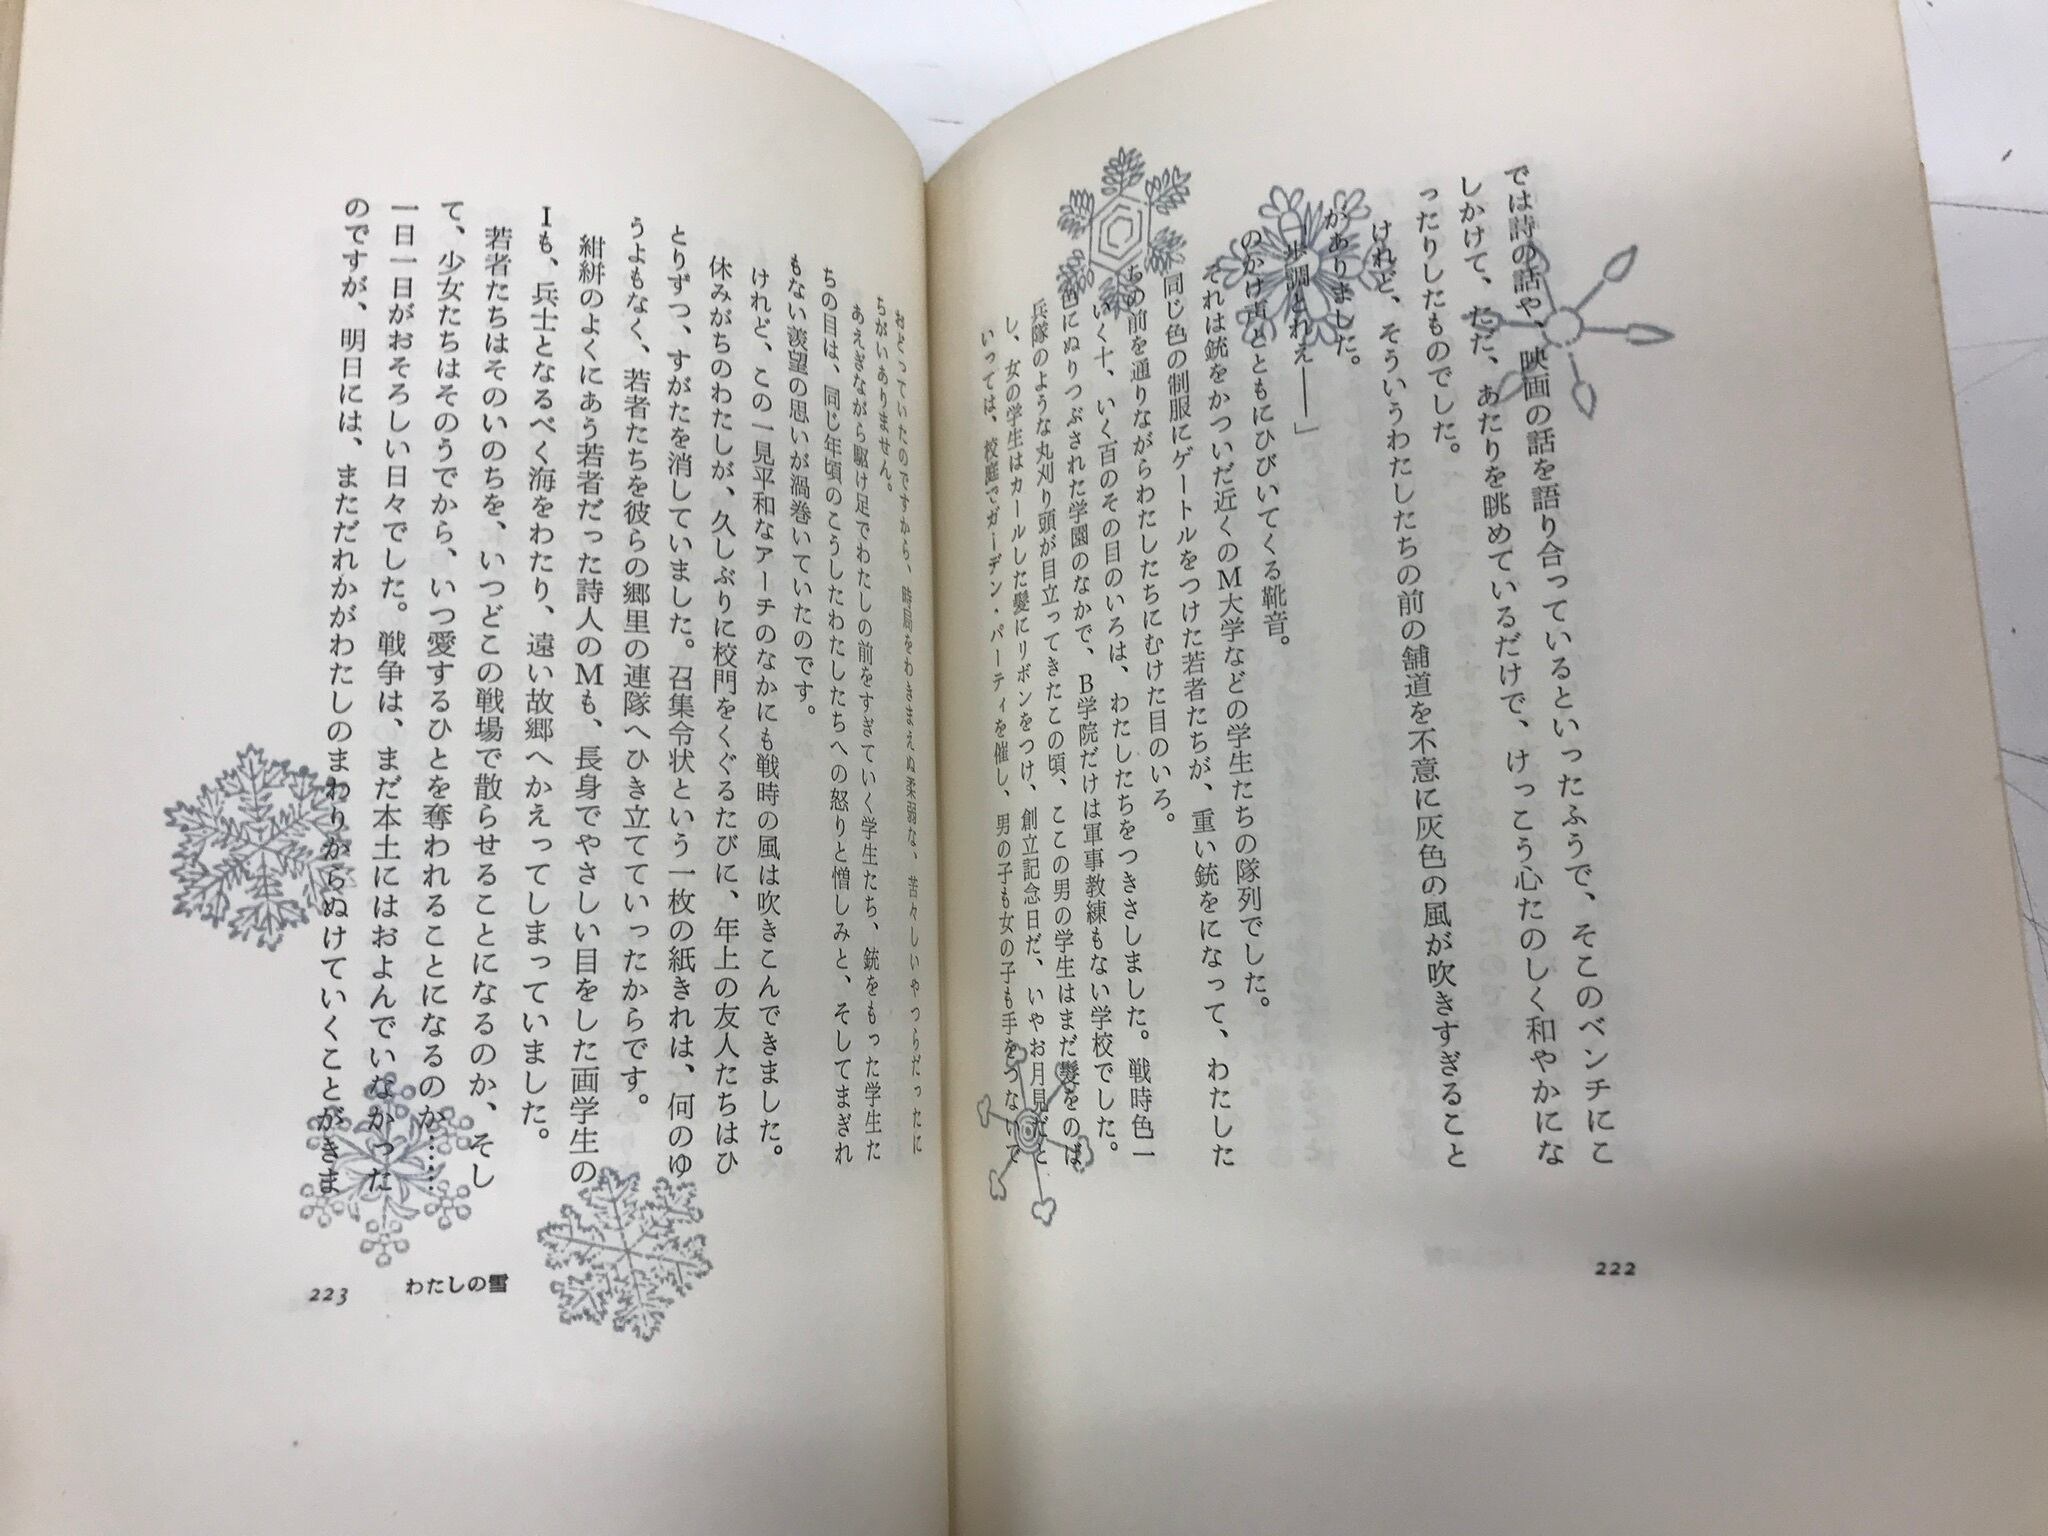 では詩の話や、映画の話を語り合っているといったふうで、そこのベンチにこ
しかけて、ただ、あたりを眺めているだけで、けっこう心たのしく和やかにな
ったりしたものでした。
けれど、そういうわたしたちの前の舗道を不意に灰色の風が吹きすぎること
がありました。
「歩調とれえ――」
のかけ声とともにひびいてくる靴音。
それは銃をかついだ近くのM大学などの学生たちの隊列でした。
同じ色の制服にゲートルをつけた若者たちが、重い銃をになって、わたした
ちの前を通りながらわたしたちにむけた目のいろ。
いく十、いく百のその目のいろは、わたしたちをつきさしました。戦時色一
色にぬりつぶされた学園のなかで、B学院だけは軍事教練もない学校でした。
兵隊のような丸刈り頭が目立ってきたこの頃、ここの男の学生はまだ髪をのば
し、女の学生はカールした髪にリボンをつけ、創立記念日だ、いやお月見だと
いっては、校庭でガーデン・パーティを催し、男の子も女の子も手をつないで
おどっていたのですから、時局をわきまえぬ柔弱な、苦々しいやつらだったに
ちがいありません。
あえぎながら駆け足でわたしの前をすぎていく学生たち、銃をもった学生た
ちの目は、同じ年頃のこうしたわたしたちへの怒りと憎しみと、そしてまぎれ
もない羨望の思いが渦巻いていたのです。
けれど、この一見平和なアーチのなかにも戦時の風は吹きこんできました。
休みがちのわたしが、久しぶりに校門をくぐるたびに、年上の友人たちはひ
とりずつ、すがたを消していました。召集令状という一枚の紙きれは、何のゆ
うよもなく、若者たちを彼らの郷里の連隊へひき立てていったからです。
紺絣のよくにあう若者だった詩人のMも、長身でやさしい目をした画学生の
Iも、兵士となるべく海をわたり、遠い故郷へかえってしまっていました。
若者たちはそのいのちを、いつどこの戦場で散らせることになるのか、そし
て、少女たちはそのうでから、いつ愛するひとを奪われることになるのか……
一日一日がおそろしい日々でした。戦争は、まだ本土にはおよんでいなかった
のですが、明日には、まただれかがわたしのまわりからぬけていくことがきま
222
223 わたしの雪